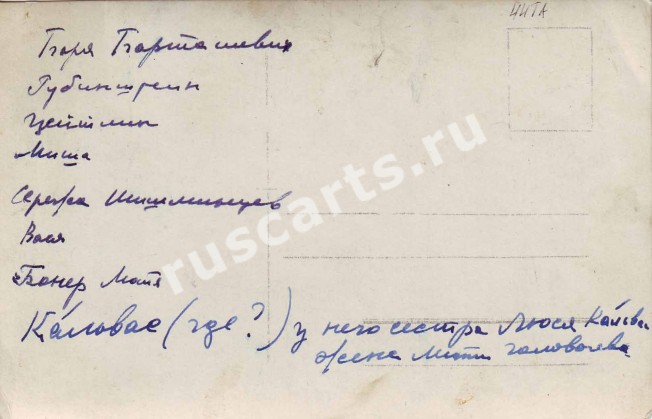 ЧИТА
Боря Барташевич
Рубинштейн
Цейтлин
Миша
Сережа Шишминцев
Вася
Бонер Мотя
Каловас (где?) у него сестра Люся
жена Мити Головачева
ruscarts.ru